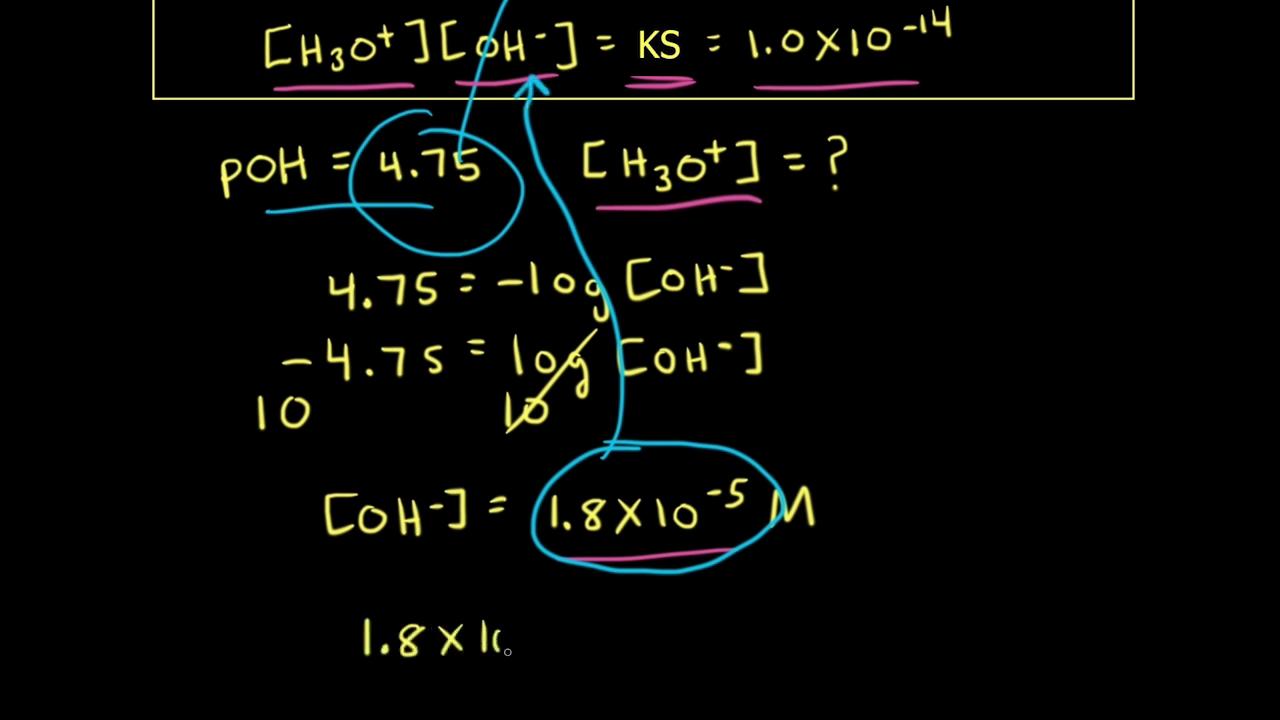 [H₃O⁺][OH⁻] = KS = 1.0×10⁻¹⁴
pOH = 4.75 [H₃O⁺] = ?
4.75 = -log [OH⁻]
-4.75 = log [OH⁻]
10 10
[OH⁻] = 1.8×10⁻⁵ M
1.8×1